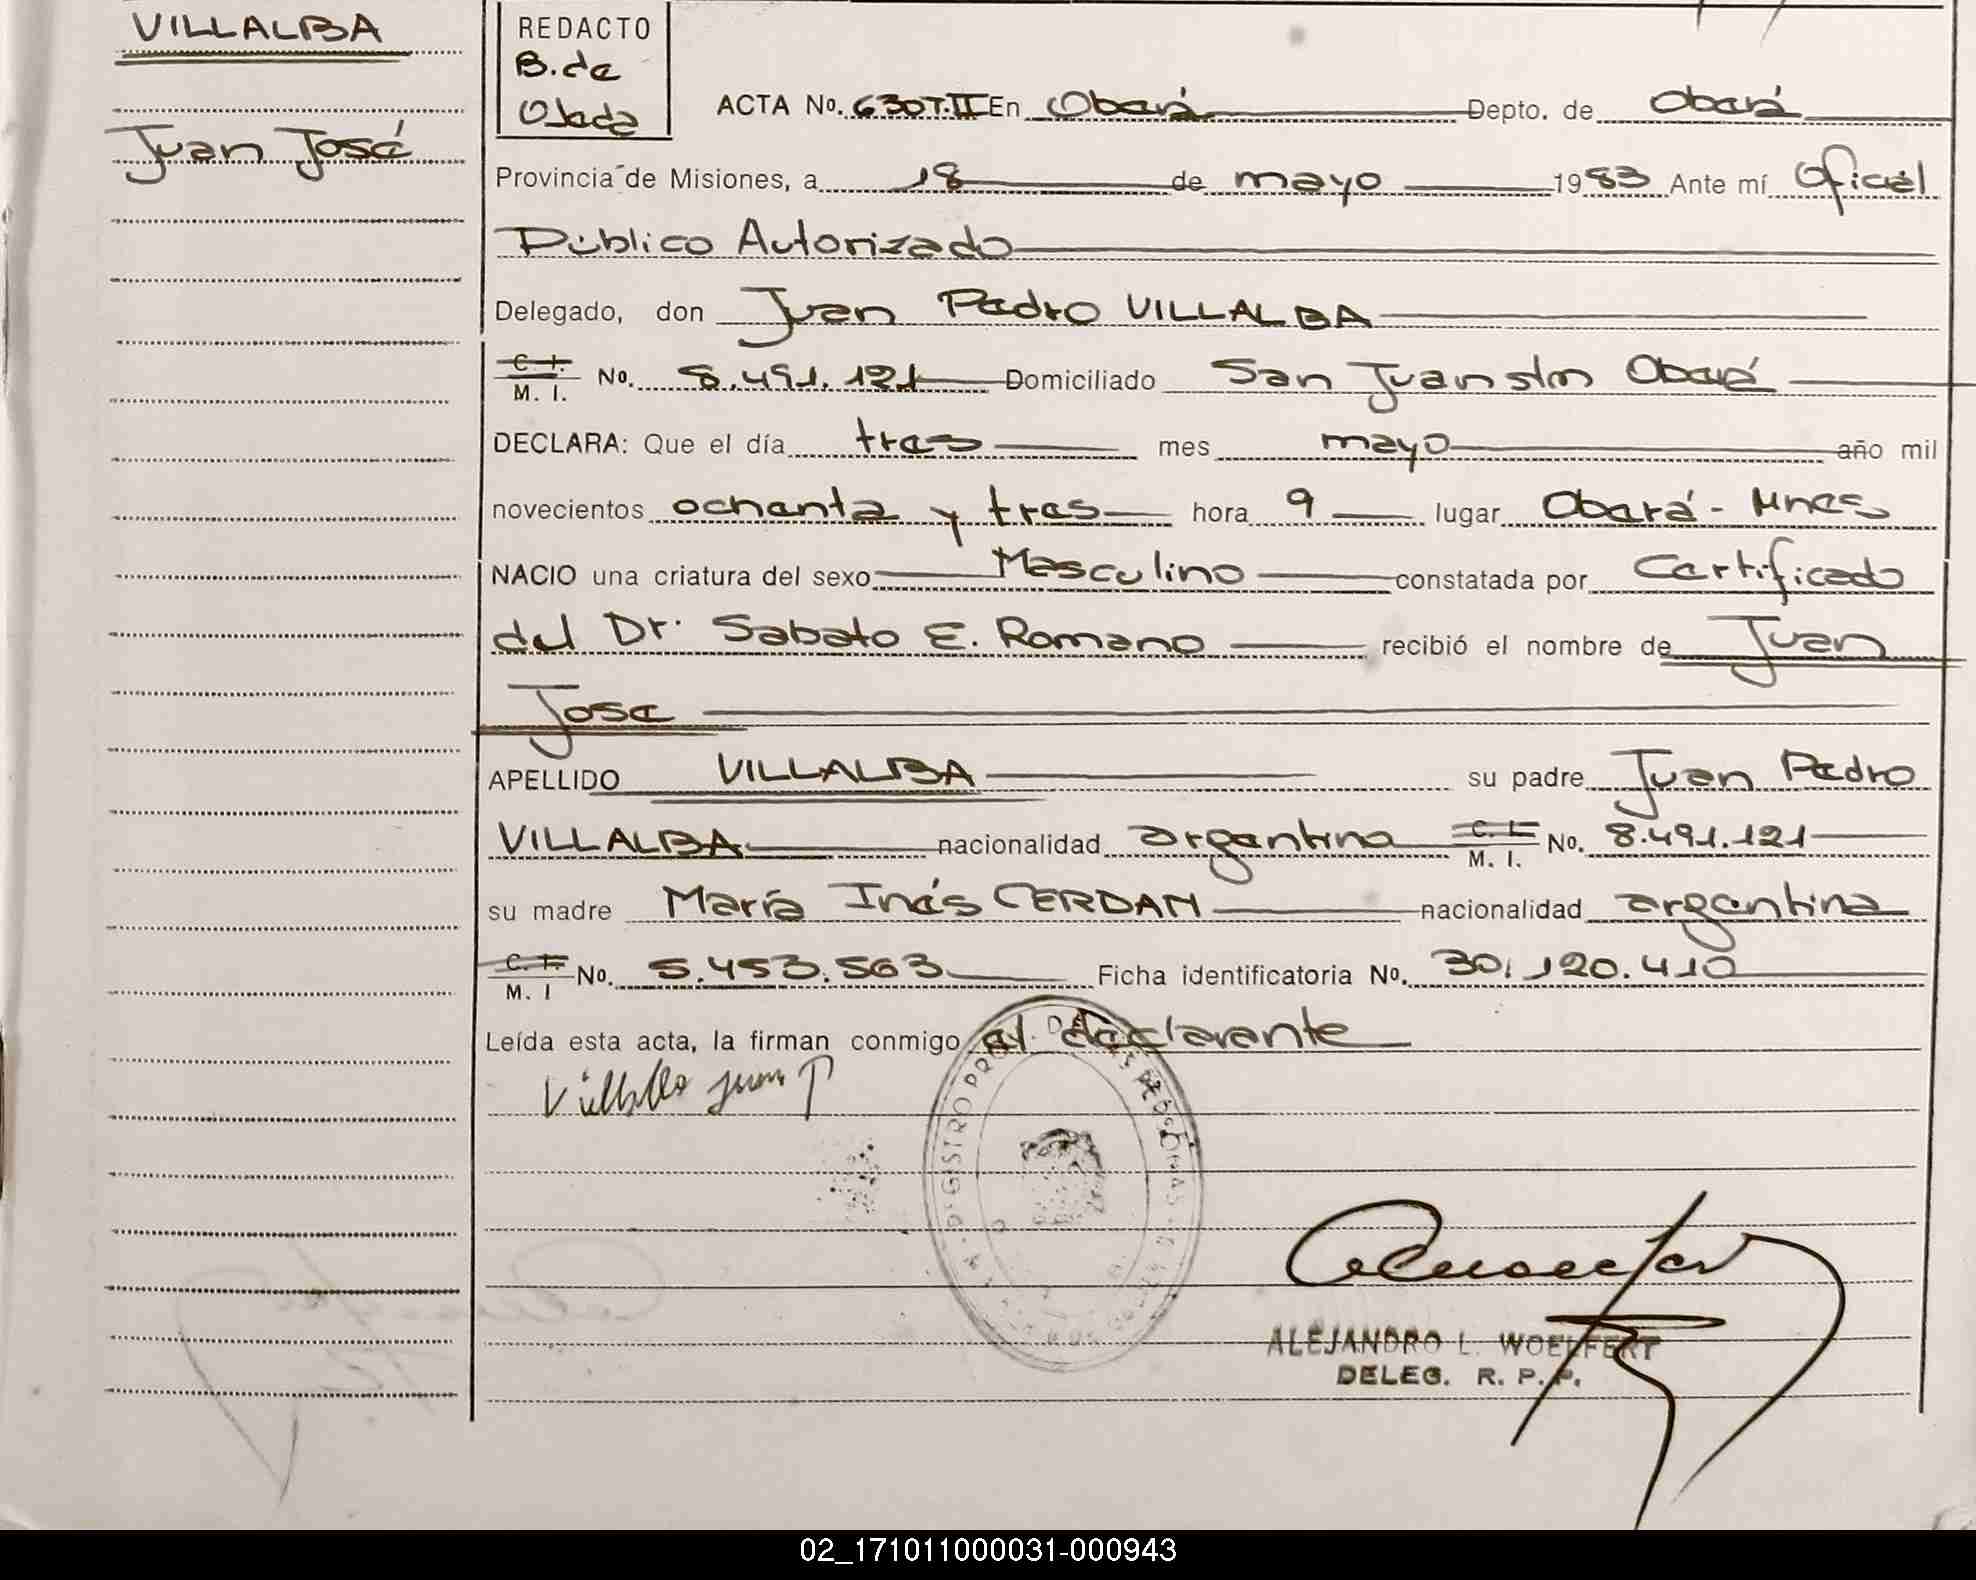 VILLALBA
Juan José
REDACTO
B. de
Ojeda
ACTA No. 630 T. II En Oberá Depto. de Oberá
Provincia de Misiones, a 18 de mayo 1983 Ante mí Oficial
Público Autorizado
Delegado, don Juan Pedro VILLALBA
C. I.
M. I. No. 8.491.121 Domiciliado Domiciliado San Juan s/n Oberá
DECLARA: Que el día tres mes mayo año mil
novecientos ochenta y tres hora 9 lugar Oberá - Mnes
NACIO una criatura del sexo Masculino constatada por Certificado
del Dr. Sabato E. Romano recibió el nombre de Juan
Jose
APELLIDO VILLALBA su padre Juan Pedro
VILLALBA nacionalidad argentina C. I. M. I. No. 8.491.121
su madre María Inés CERDAN nacionalidad argentina
C. I.
M. I No. 5.453.563 Ficha identificatoria No. 30.120.410
Leída esta acta, la firman conmigo el declarante
Villalba Juan P
ALEJANDRO L. WOELFERT
DELEG. R. P. P.
02_171011000031-000943